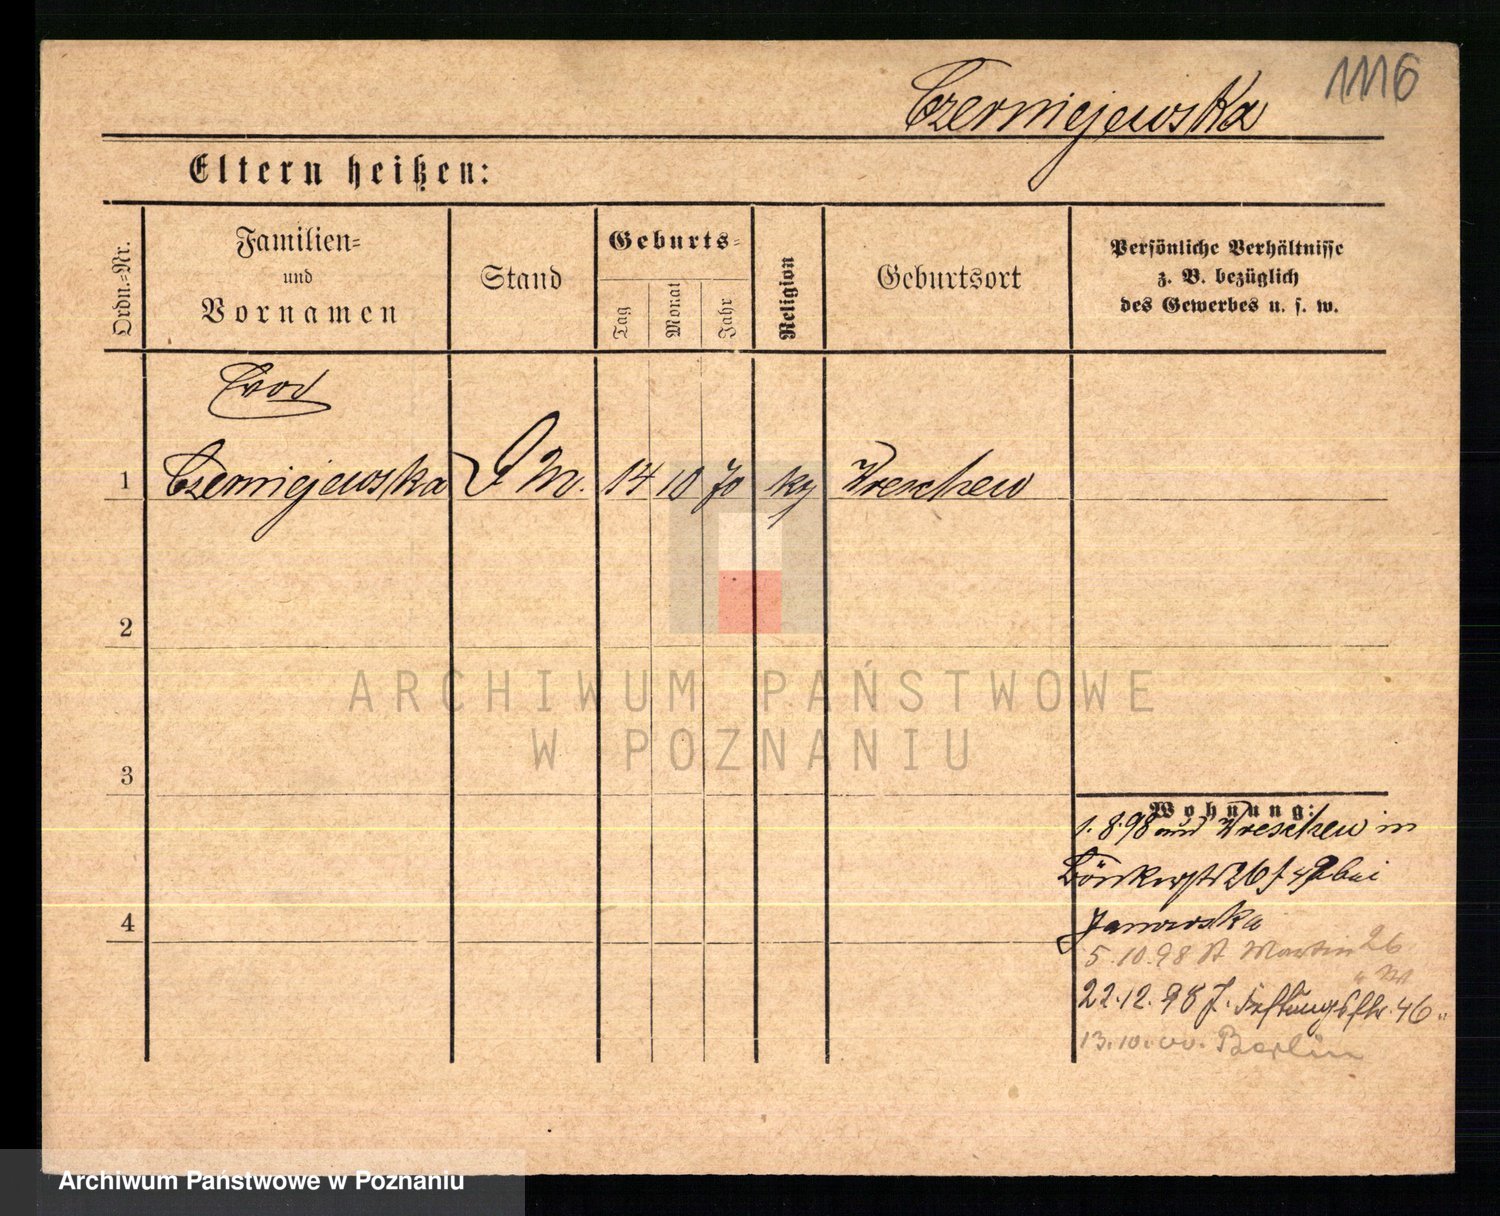 1116
Czerniejewska
Eltern heißen:
Ordn.-Nr.
Familien-
und
Vornamen
Stand
Geburts-
Tag
Monat
Jahr
Religion
Geburtsort
Persönliche Verhältnisse
z. B. bezüglich
des Gewerbes u. s. w.
1 Czerniejewska 14 10 70 Wreschen
2
3
4
Wohnung:
1.8.98 aus Wreschen in
26 bei
Janowska
5.10.98 St Martin 26
22.12.98 46
13.10.00. Berlin
ARCHIWUM PAŃSTWOWE
W POZNANIU
Archiwum Państwowe w Poznaniu